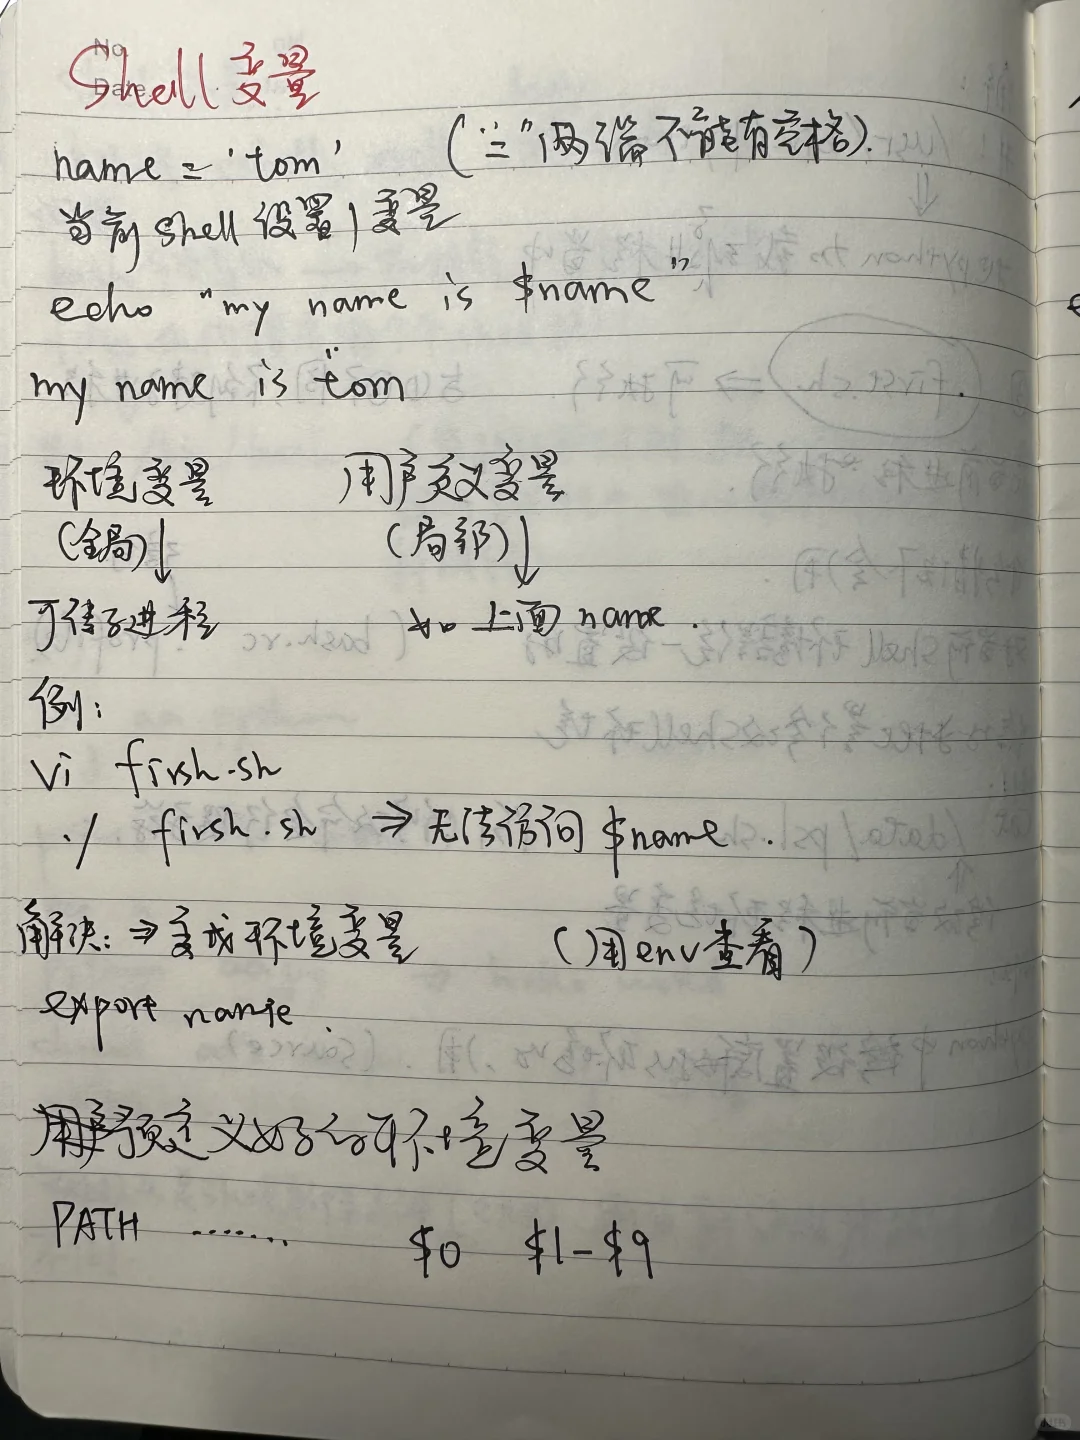 Shell 变量
name = 'tom' ("=" 两端不能有空格).
当前 shell 设置了变量
echo "my name is $name"
my name is tom
环境变量 用户定义变量
(全局)↓ (局部)↓
可传子进程 如上面 name.
例:
vi firsh.sh
./ firsh.sh ⇒ 无法访问 $name.
解决: ⇒ 变成环境变量 (用env查看)
export name.
预定义好的环境变量
PATH ........ $0 $1-$9